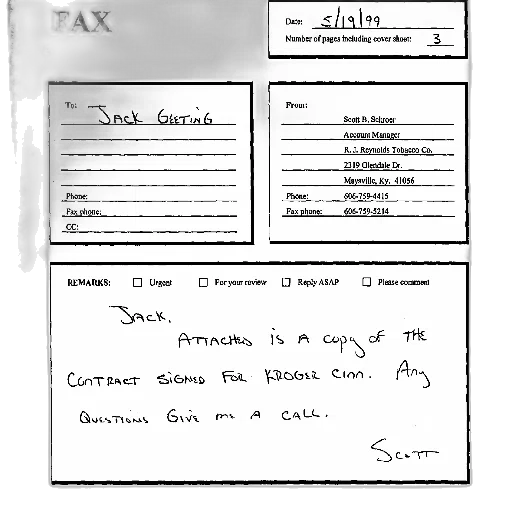 FAX
Date: 5/19/99
Number of pages including cover sheet: 3
To: JACK GEETING
Phone:
Fax phone:
CC:
From:
Scott B. Schroer
Account Manager
R. J. Reynolds Tobacco Co.
2319 Glendale Dr.
Maysville, Ky. 41056
Phone: 606-759-4415
Fax phone: 606-759-5214
REMARKS: ☐ Urgent ☐ For your review ☐ Reply ASAP ☐ Please comment
JACK,
ATTACHED is A copy of THE
CONTRACT SIGNED FOR KROGER CINN. Any
QUESTIONS GIVE ME A CALL.
SCOTT